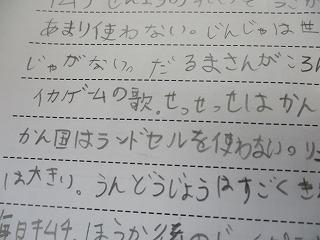 あまり使わない。じんじゃは世
じゃがない。だるまさんがころん
イカゲームの歌。せっせっせはかん
かん国はランドセルを使わない。リコ
は大きい。うんどうじょうはすごくき
毎日キムチ。ほうか後の